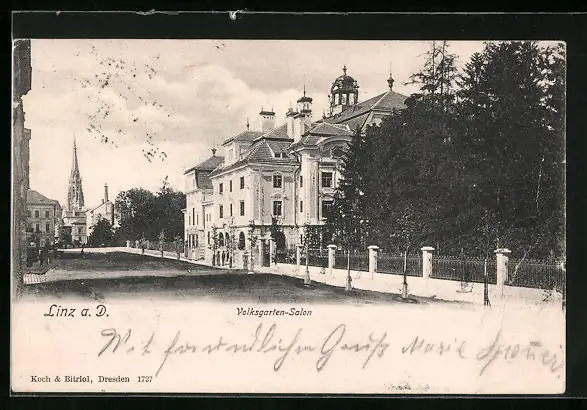 Linz a. D.
Volksgarten-Salon
Mit freundlichen Gruß Marie
Koch & Bitriol, Dresden 1727